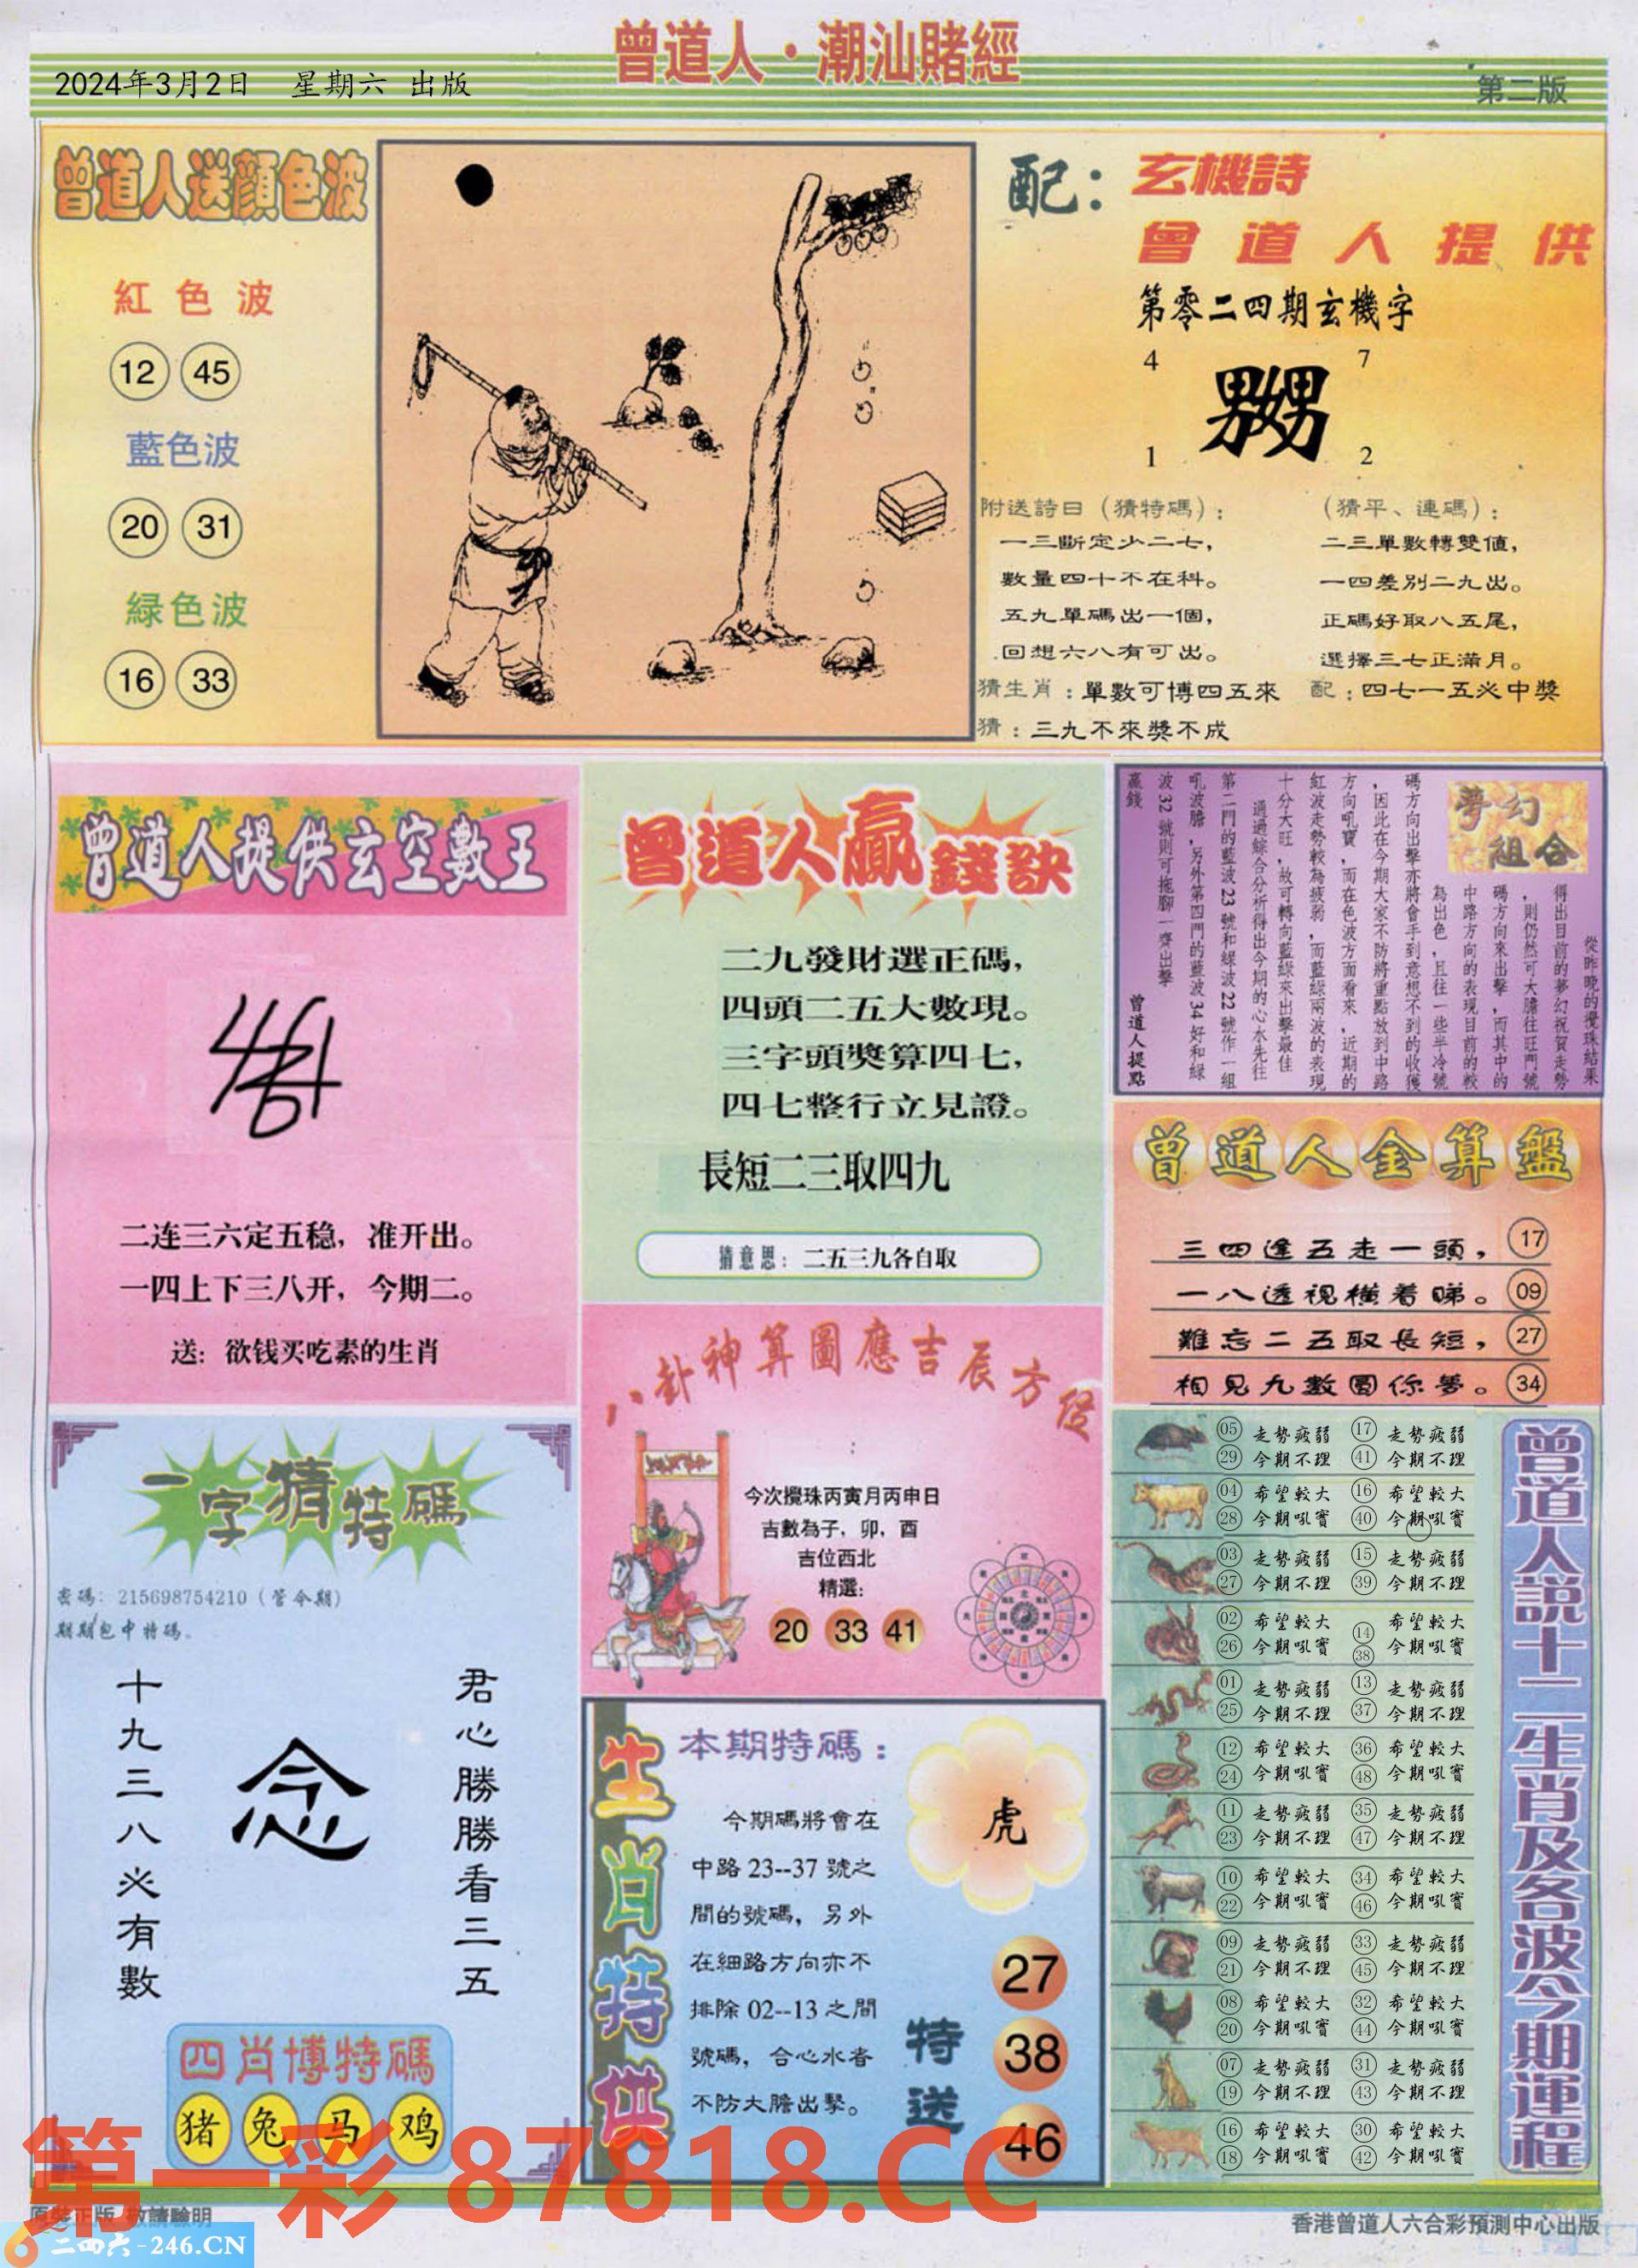 曾道人·潮汕賭經
2024年3月2日 星期六 出版
第二版
曾道人送顔色波
紅色波
12 45
藍色波
20 31
緑色波
16 33
配：玄機詩
曾道人提供
第零二四期玄機字
4 7
嬲
1 2
附送詩日（猜特碼）：
一三斷定少二七，
數量四十不在科。
五九單碼出一個，
回想六八有可出。
（猜平、連碼）：
二三單數轉雙值，
一四差別二九出。
正碼好取八五尾，
選擇三七正滿月。
猜生肖：單數可博四五來 配：四七一五必中獎
猜：三九不來獎不成
曾道人提供玄空數王
二连三六定五稳，准开出。
一四上下三八开，今期二。
送：欲钱买吃素的生肖
曾道人贏錢訣
二九發財選正碼，
四頭二五大數現。
三字頭獎算四七，
四七整行立見證。
長短二三取四九
猜意思：二五三九各自取
夢幻
組合
從昨晚的攪珠結果
得出目前的夢幻祝賀走勢
，則仍然可大膽往旺門號
碼方向來出擊，而其中的
中路方向的表現目前的較
為出色，且往一些半冷號
碼方向出擊亦將會手到意想不到的收獲
，因此在今期大家不防將重點放到中路
方向吼寶，而在色波方面看來，近期的
紅波走勢較為疲弱，而藍綠兩波的表現
十分大旺，故可轉向藍綠來出擊最佳
通過綜合分析得出今期的心水先往
第二門的藍波23號和綠波22號作一組
吼波膽，另外第四門的藍波34好和綠
波32號則可拖腳一齊出擊
贏錢 曾道人提點
曾道人金算盤
三四逢五走一頭，17
一八透視橫着睇。09
難忘二五取長短，27
相見九數圓你夢。34
八卦神算圖應吉辰方位
今次攪珠丙寅月丙申日
吉數為子，卯，酉
吉位西北
精選：
20 33 41
一字猜特碼
密碼：215698754210（管今期）
期期包中特碼。
君心勝勝看三五
念
十九三八必有數
四肖博特碼
猪 兔 马 鸡
生肖特供
本期特碼：
今期碼將會在
中路23--37號之
間的號碼，另外
在細路方向亦不
排除02--13之間
號碼，合心水者
不防大膽出擊。
虎
特送
27
38
46
曾道人說十二生肖及各波今期運程
05 走勢疲弱 17 走勢疲弱
29 今期不理 41 今期不理
04 希望較大 16 希望較大
28 今期吼實 40 今期吼實
03 走勢疲弱 15 走勢疲弱
27 今期不理 39 今期不理
02 希望較大 14 希望較大
26 今期吼實 38 今期吼實
01 走勢疲弱 13 走勢疲弱
25 今期不理 37 今期不理
12 希望較大 36 希望較大
24 今期吼實 48 今期吼實
11 走勢疲弱 35 走勢疲弱
23 今期不理 47 今期不理
10 希望較大 34 希望較大
22 今期吼實 46 今期吼實
09 走勢疲弱 33 走勢疲弱
21 今期不理 45 今期不理
08 希望較大 32 希望較大
20 今期吼實 44 今期吼實
07 走勢疲弱 31 走勢疲弱
19 今期不理 43 今期不理
16 希望較大 30 希望較大
18 今期吼實 42 今期吼實
第一彩 87818.CC
原裝正版 敬請驗明
二四六-246.CN
香港曾道人六合彩預測中心出版